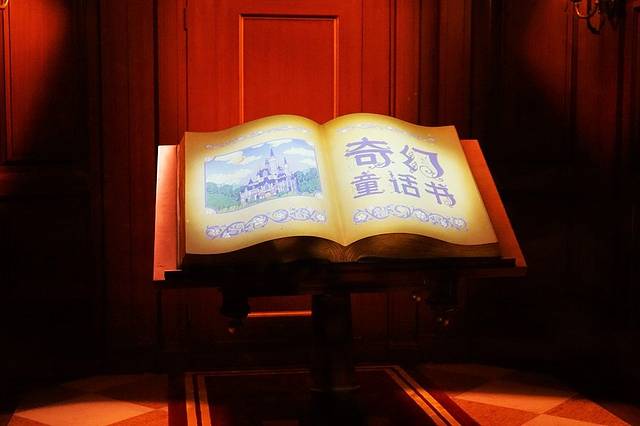 奇幻
童话书